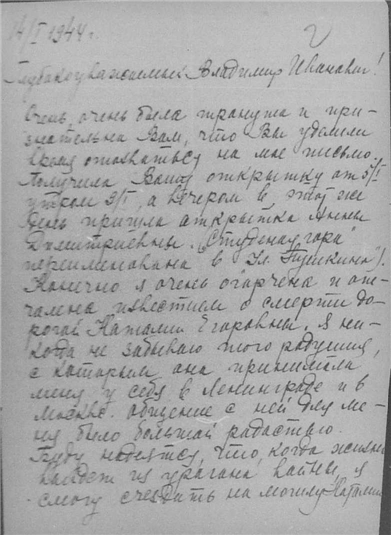 14/I 1944 г.
Глубокоуважаемый Владимир Иванович!
Очень, очень была тронута и при-
знательна Вам, что Вы уделили
время отозваться на мое письмо.
Получила Вашу открытку от 3/I
утром 9/I, а вечером в этот же
день пришла открытка Анны
Дмитриевны. ("Студеная гора"
переименована в Ул. Пушкина).
Конечно я очень огорчена и опе-
чалена известием о смерти до-
рогой Наталии Егоровны. Я ни-
когда не забываю того радушия,
с которым она принимала
меня у себя в Ленинграде и в
Москве. Общение с ней для ме-
ня было большой радостью.
Буду надеяться, что, когда жизнь
выйдет из урагана войны, я
смогу съездить на могилу Наталии